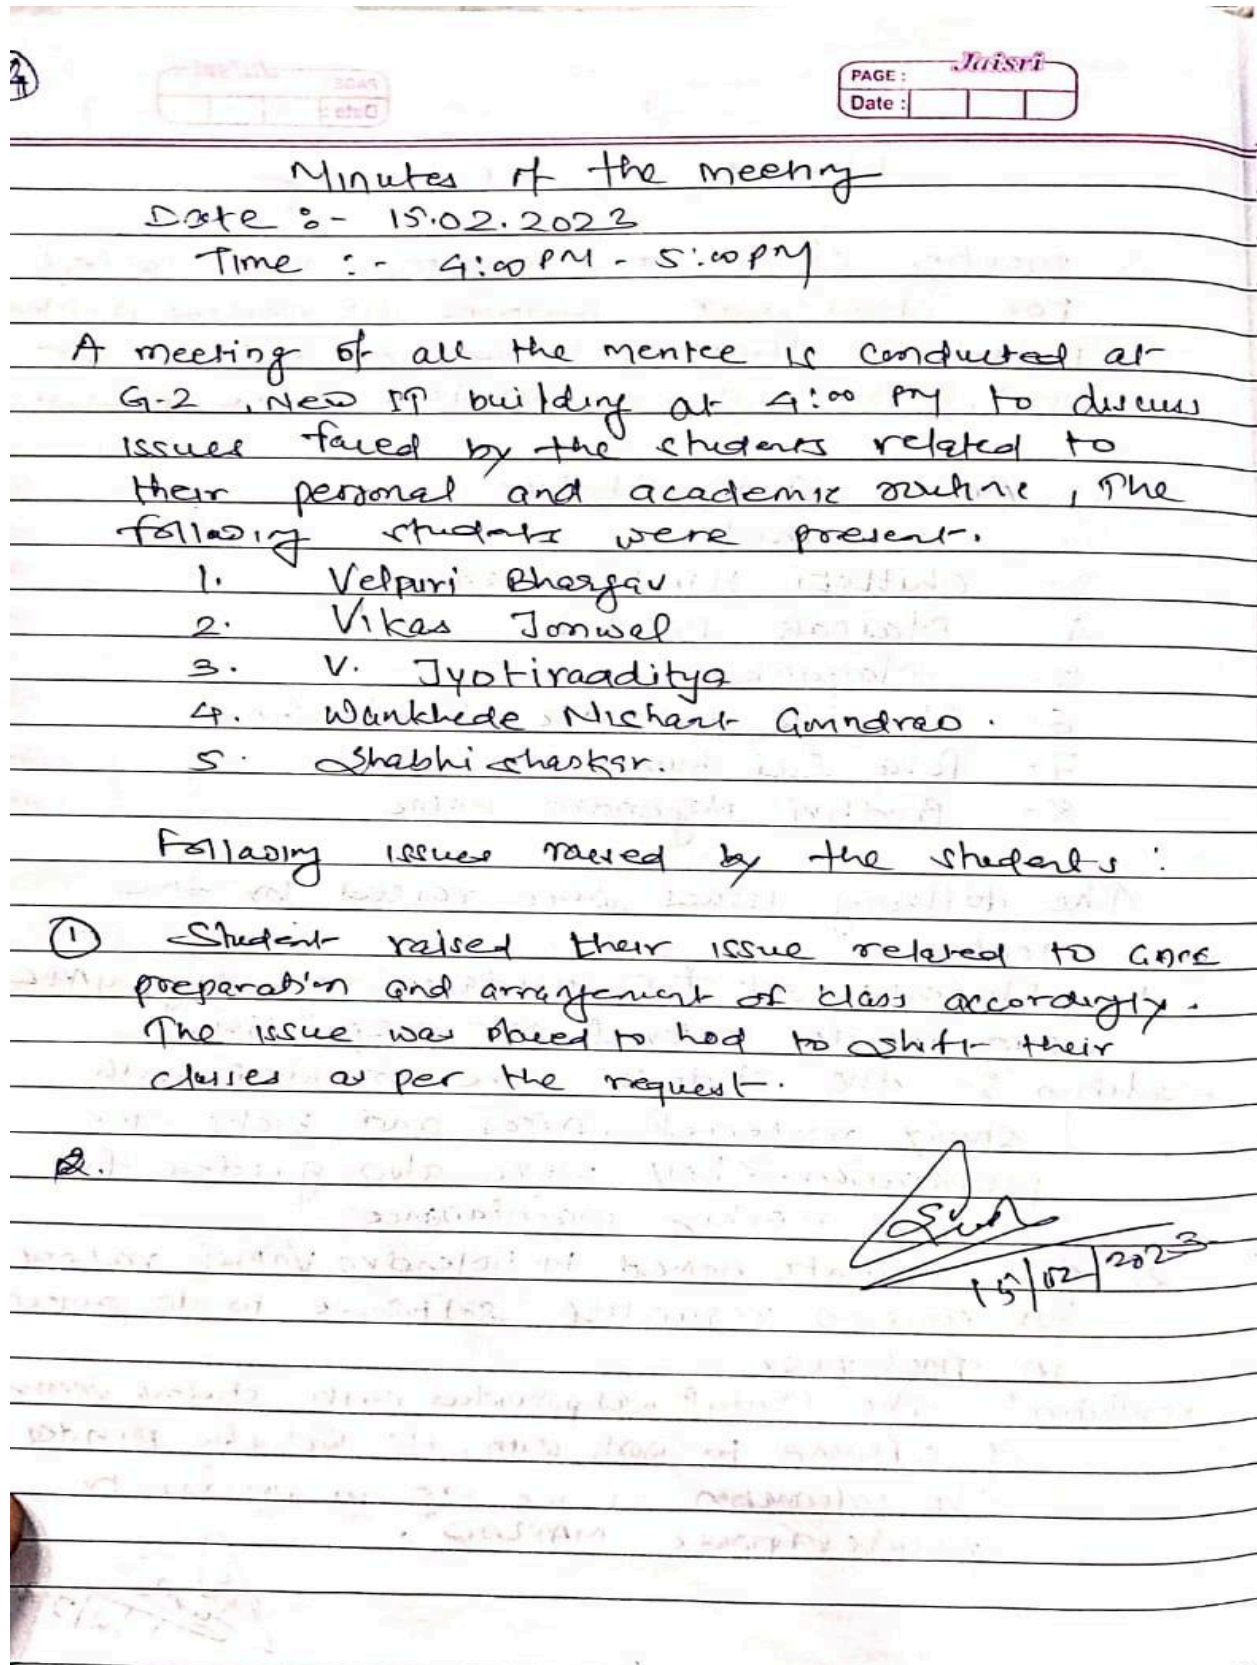 Jaisri
PAGE :
Date :
Minutes of the meeting
Date :- 15.02.2023
Time :- 4:00 PM - 5:00 PM
A meeting of all the mentee is conducted at
G-2, New IT building at 4:00 PM to discuss
issues faced by the students related to
their personal and academic routine, The
following students were present.
1. Velpuri Bhargav
2. Vikas Jonwal
3. V. Jyotiraaditya
4. Wankhede Nishant
5. Shabhi
Following issues raised by the students :
① Student raised their issue related to GATE
preparation and arrangement of class accordingly.
The issue was placed to hod to shift their
classes as per the request.
2.
15/02/2023